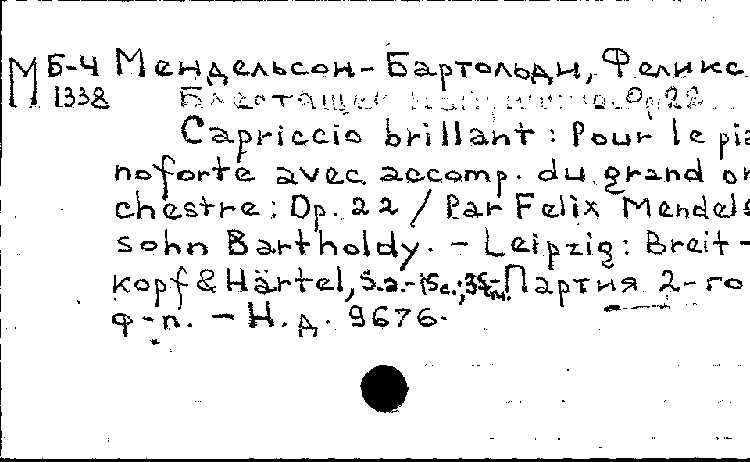 М Б-4 Мендельсон-Бартольди, Феликс
1338 Op. 22
Capriccio brillant: Pour le pia
noforte avec accomp. du grand or
chestre: Op. 22 / Par Felix Mendels
sohn Bartholdy. - Leipzig: Breit-
kopf & Härtel, S.a.-15с.; 35см. Партия 2-го
ф-п. - Н.д. 9676.